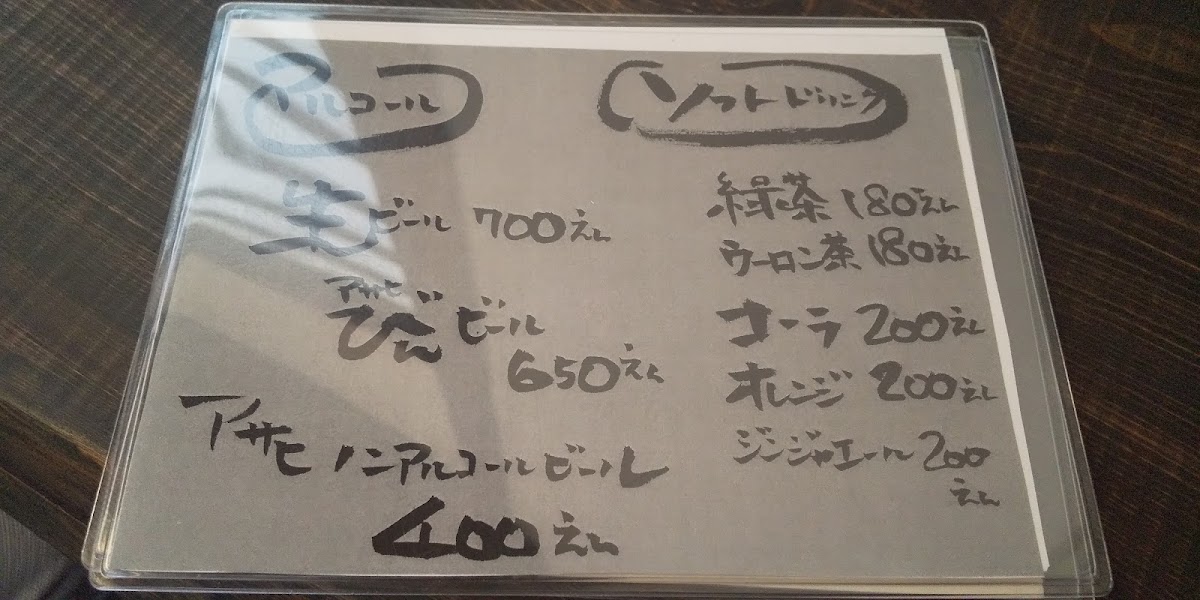 アルコール
生ビール 700えん
アサヒ
びんビール
650えん
アサヒ ノンアルコールビール
400えん
ソフトドリンク
緑茶 180えん
ウーロン茶 180えん
コーラ 200えん
オレンジ 200えん
ジンジャエール 200
えん